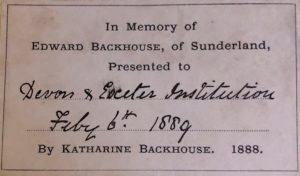 In Memory of
EDWARD BACKHOUSE, of Sunderland,
Presented to
Devon & Exeter Institution
Feby 6th 1889
By KATHARINE BACKHOUSE. 1888.